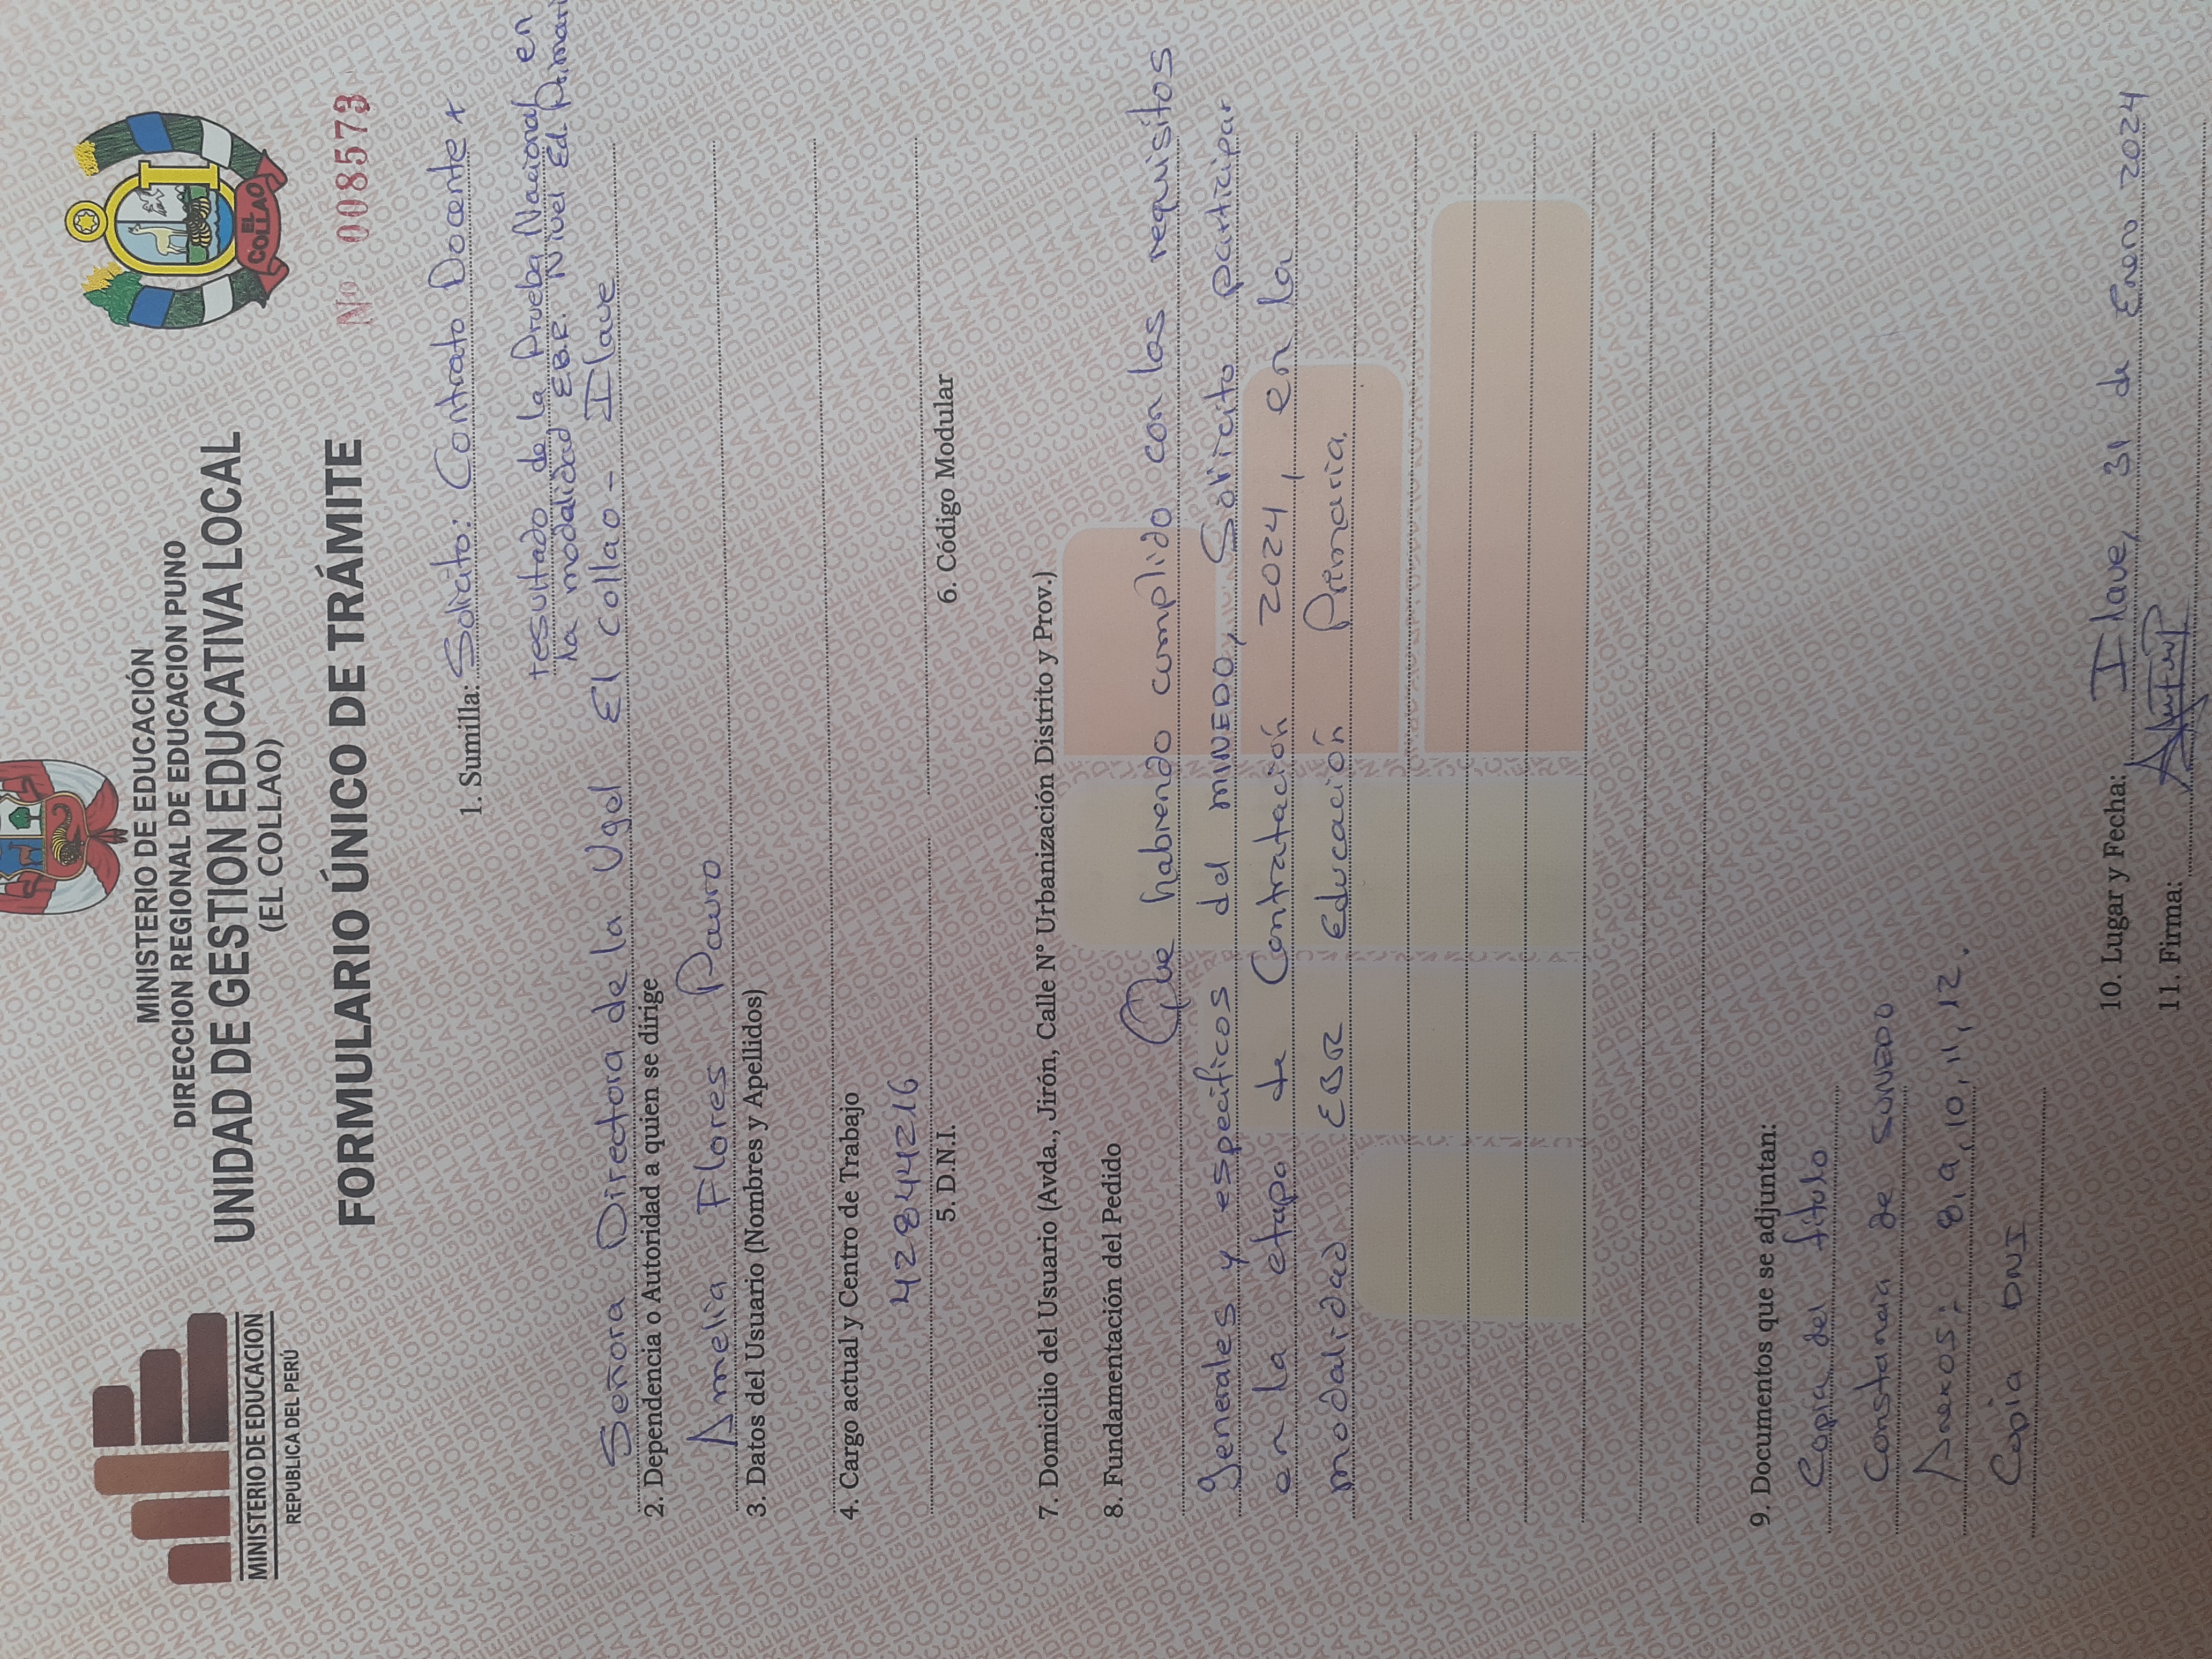 MINISTERIO DE EDUCACION
REPUBLICA DEL PERÚ
MINISTERIO DE EDUCACIÓN
DIRECCION REGIONAL DE EDUCACION PUNO
UNIDAD DE GESTION EDUCATIVA LOCAL
(EL COLLAO)
EL COLLAO
FORMULARIO ÚNICO DE TRÁMITE
Nº 008573
1. Sumilla: Solicito: Contrato Docente x
resultado de la Prueba Nacional en
la modalidad EBR. Nivel Ed. Primari
Señora Directora de la Ugel El Collao - Ilave
2. Dependencia o Autoridad a quien se dirige
Amelia Flores Pauro
3. Datos del Usuario (Nombres y Apellidos)
4. Cargo actual y Centro de Trabajo
42844216
5. D.N.I.
6. Código Modular
7. Domicilio del Usuario (Avda., Jirón, Calle N° Urbanización Distrito y Prov.)
8. Fundamentación del Pedido
Que habiendo cumplido con los requisitos
generales y especificos del MINEDO, Solicito participar
en la etapa de Contratación 2024, en la
modalidad EBR Educación Primaria.
9. Documentos que se adjuntan:
Copia del título
Constancia de SUNEDO
Anexos: 8, 9, 10, 11, 12.
Copia DNI
10. Lugar y Fecha: Ilave, 31 de Enero 2024
11. Firma: